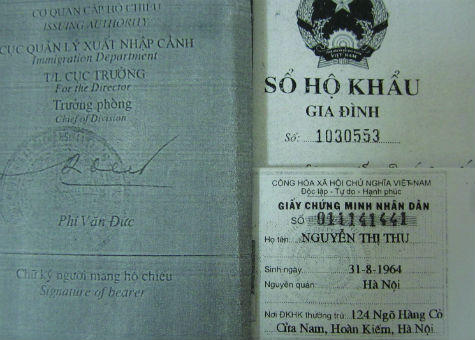 CƠ QUAN CẤP HỘ CHIẾU
ISSUING AUTHORITY
CỤC QUẢN LÝ XUẤT NHẬP CẢNH
Immigration Department
T/L CỤC TRƯỞNG
For the Director
Trưởng phòng
Chief of Division
Phí Văn Đức
Chữ ký người mang hộ chiếu
Signature of bearer
VIỆT NAM
SỔ HỘ KHẨU
GIA ĐÌNH
Số: 1030553
CỘNG HÒA XÃ HỘI CHỦ NGHĨA VIỆT NAM
Độc lập - Tự do - Hạnh phúc
GIẤY CHỨNG MINH NHÂN DÂN
SỐ 011141441
Họ tên: NGUYỄN THỊ THU
Sinh ngày 31-8-1964
Nguyên quán Hà Nội
Nơi ĐKHK thường trú: 124 Ngõ Hàng Cỏ
Cửa Nam, Hoàn Kiếm, Hà Nội